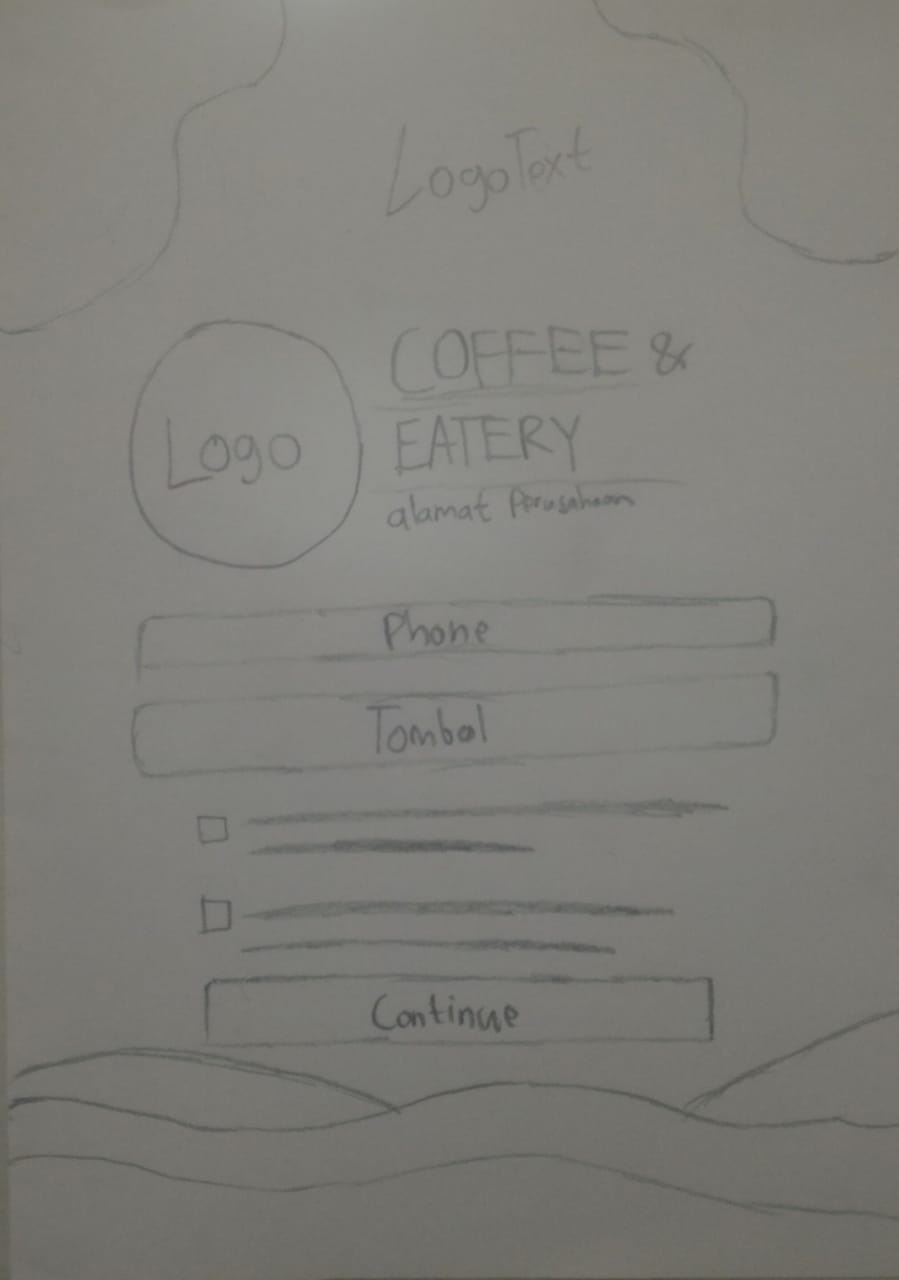 LogoText
Logo
COFFEE &
EATERY
alamat Perusahaan
Phone
Tombol
Continue